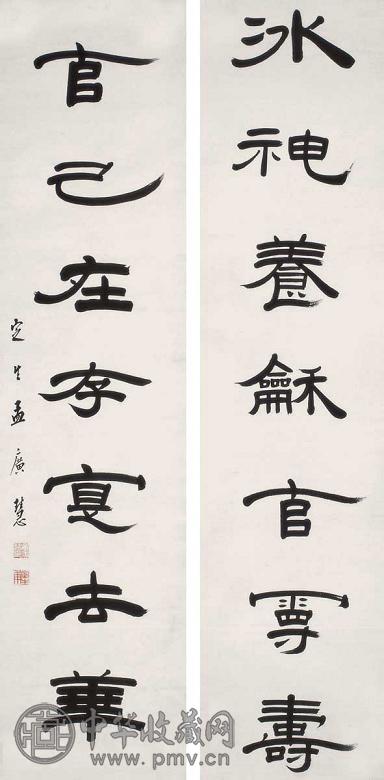 冰神養龢官壽
官己在存寔去華
定生孟廣慧
中华收藏网
www.pmv.cn